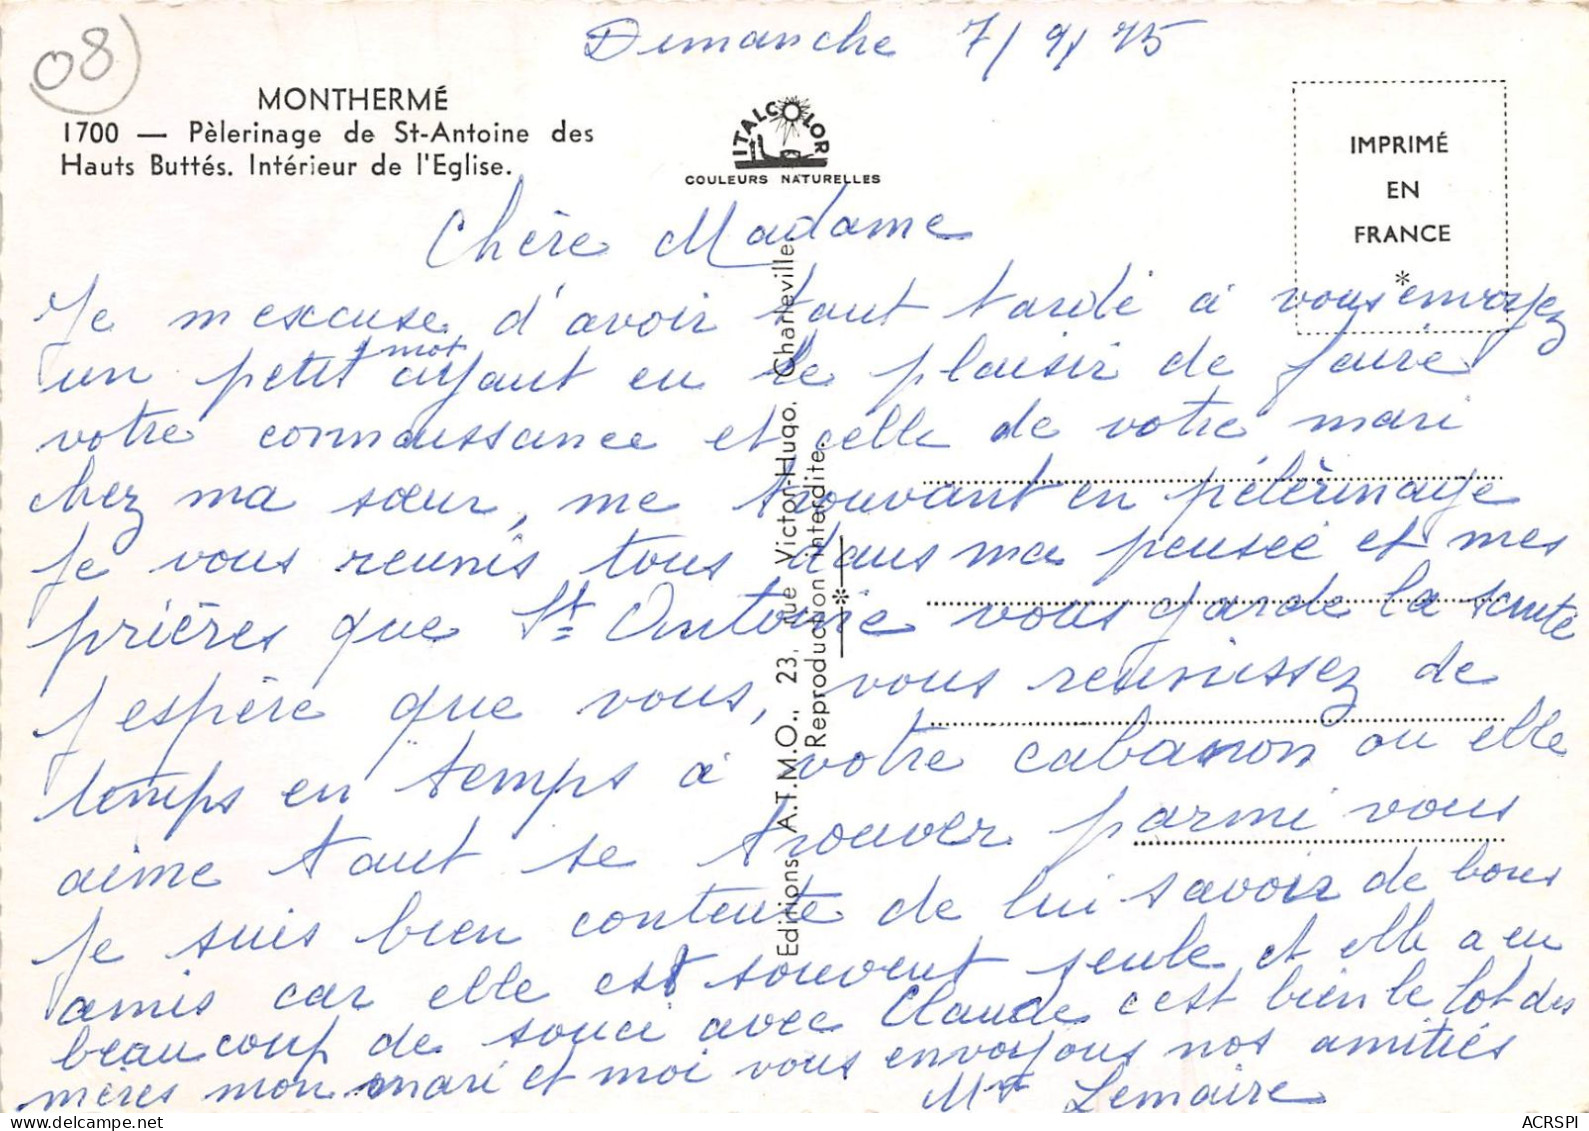 Dimanche 7/9/75
08
MONTHERMÉ
1700 — Pèlerinage de St-Antoine des
Hauts Buttés. Intérieur de l'Eglise.
ITALCOLOR
COULEURS NATURELLES
IMPRIMÉ
EN
FRANCE
*
Chère Madame
Je m'excuse d'avoir tant tardé à vous envoyez
un petit mot ayant eu le plaisir de faire
votre connaissance et celle de votre mari
chez ma sœur, me trouvant en pélèrinage
je vous reunis tous dans ma pensée et mes
prières que St Antoine vous garde la santé
j espère que vous, vous reunissez de
temps en temps à votre cabanon ou elle
aime tant se trouver parmi vous
je suis bien contente de lui savoir de bons
amis car elle est souvent seule et elle a eu
beaucoup de souci avec Claude c'est bien le lot des
mères mon mari et moi vous envoyons nos amitiés
Mme Lemaire
Editions A.T.M.O., 23, rue Victor-Hugo, Charleville.
Reproduction interdite.
*
delcampe.net
ACRSPI